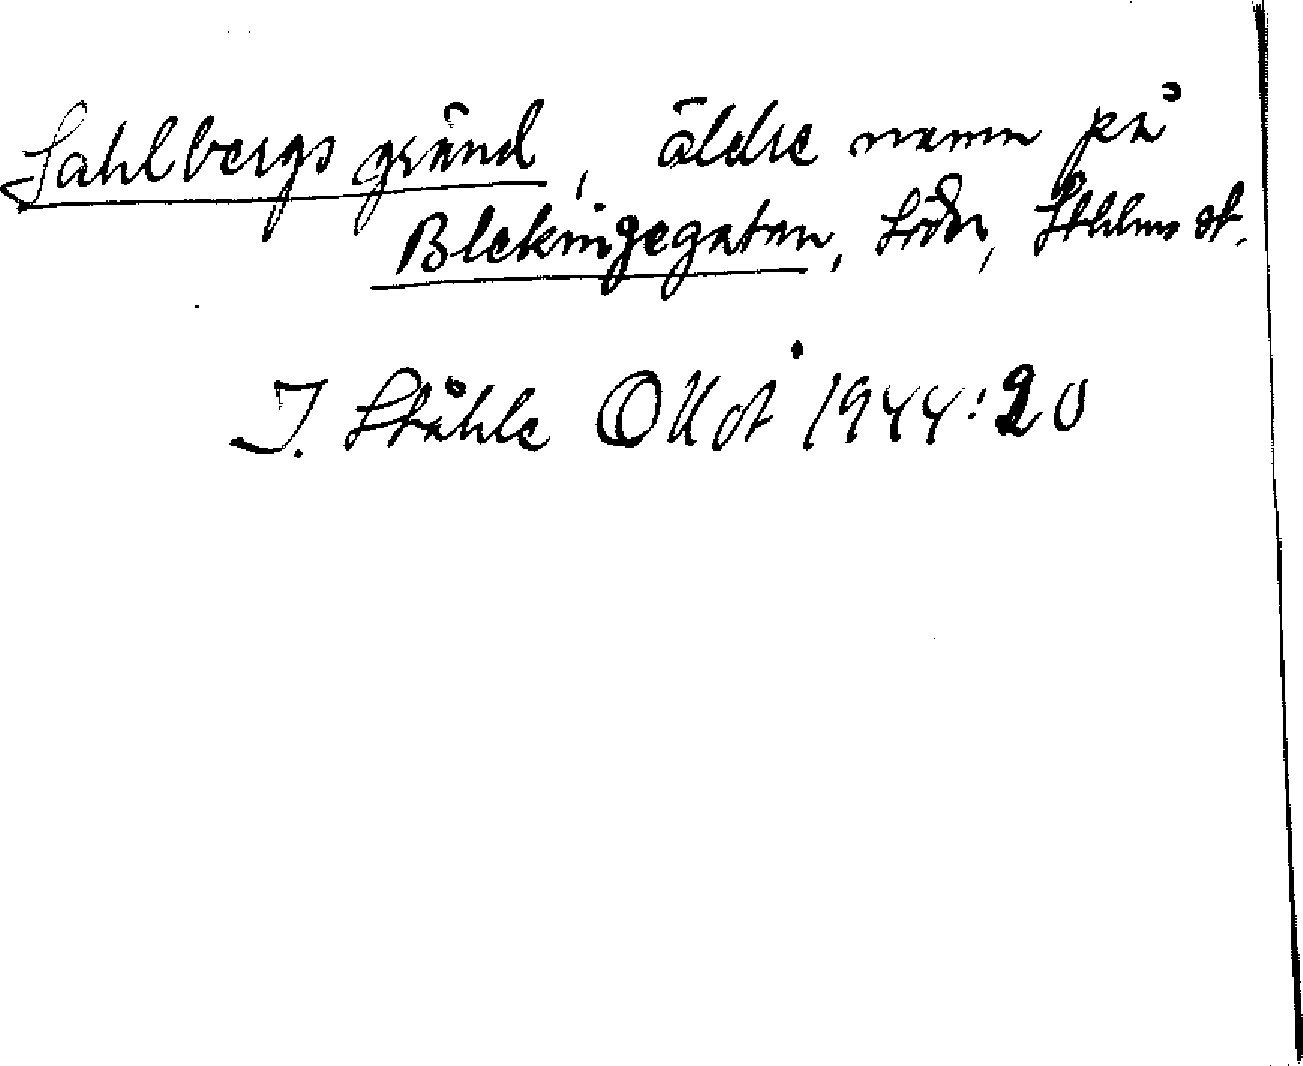 Sahlbergs gränd, äldre namn på
Blekingegatan, Söder, Sthlms st.
I. Ståhle Okt 1944: 20